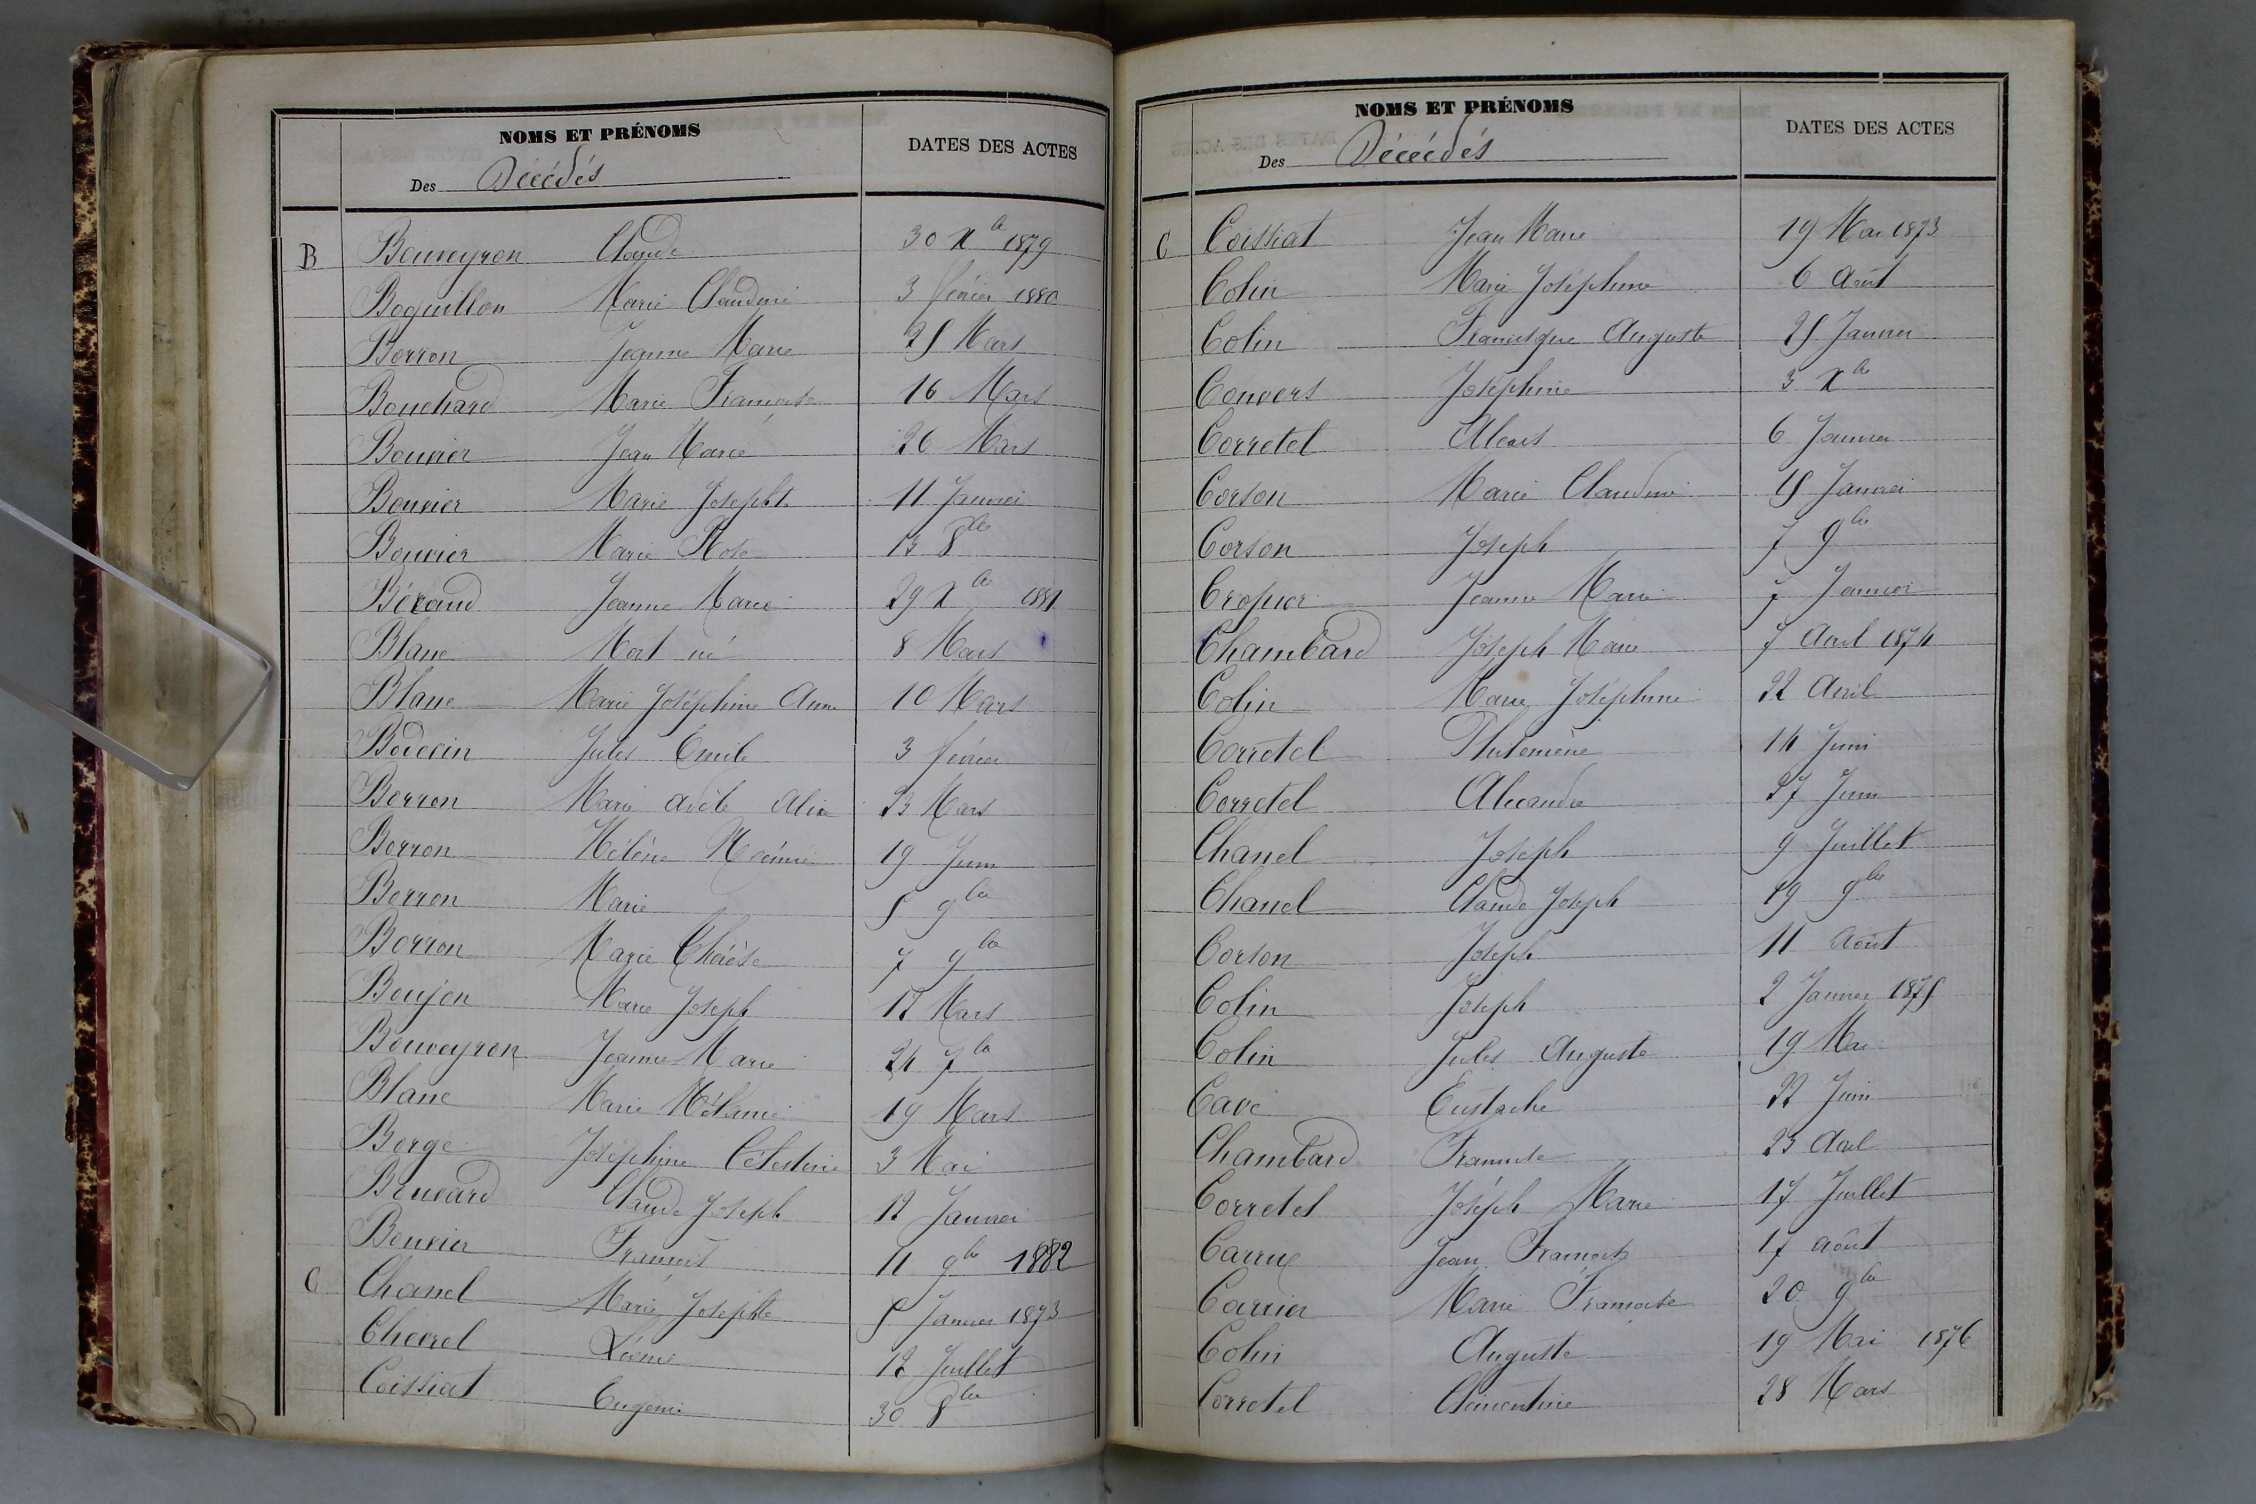 NOMS ET PRÉNOMS
DATES DES ACTES
Des Décédés
B Bouveyron Claude 30 Xbre 1879
Boguillon Marie Claudine 3 février 1880
Berron Jeanne Marie 25 Mars
Bouchard Marie Françoise 16 Mars
Bouvier Jean Marie 26 Mars
Bouvier Marie Josephte 11 Janvier
Bouvier Marie Rose 13 8bre
Béraud Jeanne Marie 29 Xbre 1881
Blanc Mort né 8 Mars
Blanc Marie Joséphine Anne 10 Mars
Bodevin Jules Emile 3 février
Berron Marie Adèle Alix 23 Mars
Borron Hélène Noémie 19 Juin
Berron Marie 5 9bre
Borron Marie Thérèse 7 9bre
Boujon Marie Joseph 12 Mars
Bouveyron Jeanne Marie 24 7bre
Blanc Marie Mélanie 19 Mars
Berge Joséphine Célestine 3 Mai
Bruvard Claude Joseph 12 Janvier
Bouvier François 11 9bre 1882
C Chanel Marie Josephte 5 Janvier 1873
Chevrel 12 Juillet
Coissiat Eugénie 30 8bre
NOMS ET PRÉNOMS
DATES DES ACTES
Des Décédés
C Coissiat Jean Marie 19 Mai 1873
Colin Marie Joséphine 6 Août
Colin Francisque Auguste 25 Janvier
Convers Joséphine 3 Xbre
Corretel Alexis 6 Janvier
Corson Marie Claudine 15 Janvier
Corson Joseph 7 9bre
Cropier Jeanne Marie 7 Janvier
Chambard Joseph Marie 7 Avril 1874
Colin Marie Joséphine 22 Avril
Corretel Philomène 14 Juin
Corretel Alexandre 27 Juin
Chanel Joseph 9 Juillet
Chanel Claude Joseph 19 9bre
Corson Joseph 11 Août
Colin Joseph 2 Janvier 1875
Colin Jules Auguste 19 Mai
Cave Eustache 22 Juin
Chambard Françoise 23 Avril
Corretel Joseph Marie 17 Juillet
Carrux Jean François 17 août
Carrier Marie Françoise 20 9bre
Colin Auguste 19 Mai 1876
Corretel Clémentine 28 Mars